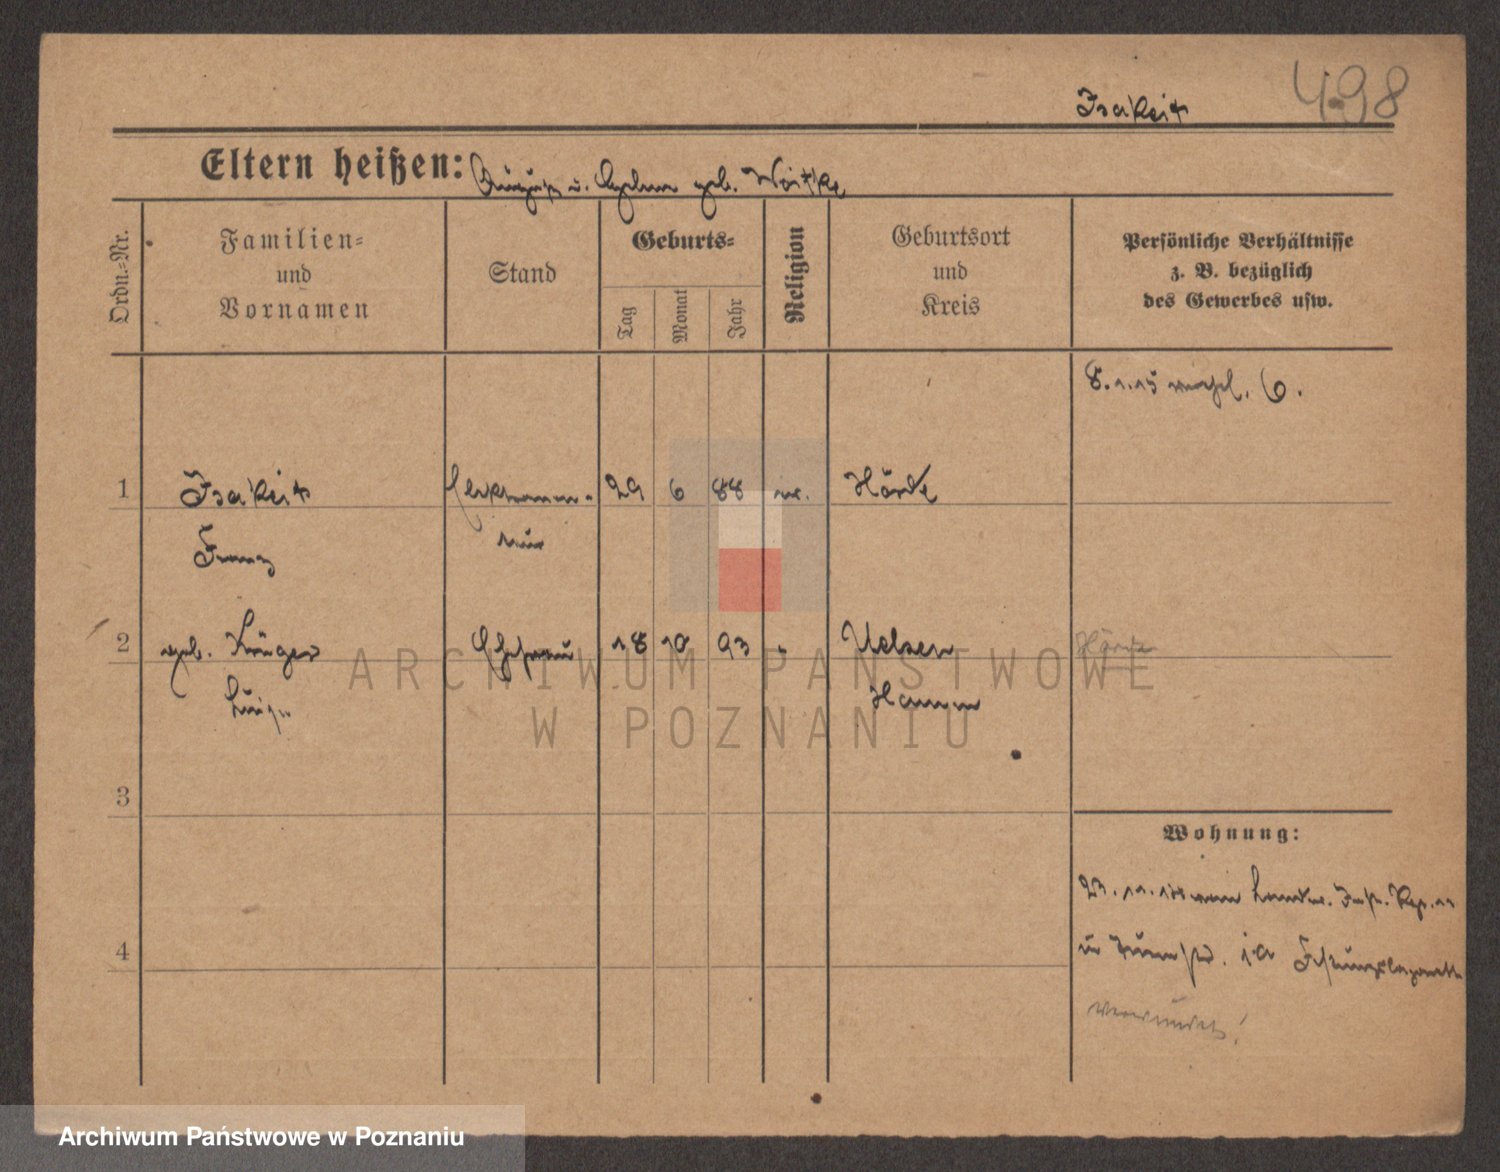 498
Isakeit
Eltern heißen: August u. Helene geb. Woitke
Ordn.-Nr.
Familien-
und
Vornamen
Stand
Geburts-
Tag
Monat
Jahr
Religion
Geburtsort
und
Kreis
Persönliche Verhältnisse
z. B. bezüglich
des Gewerbes usw.
8.1.15 6.
1 Isakeit 29 6 88 Hörde
Franz
2 geb. Krüger Ehefrau 18 10 93 " Uelsen
Luise Hamm
Hörde
3
Wohnung:
23. 11. Landw. Inf. Rgt.
4
verwundet!
ARCHIWUM PAŃSTWOWE
W POZNANIU
Archiwum Państwowe w Poznaniu